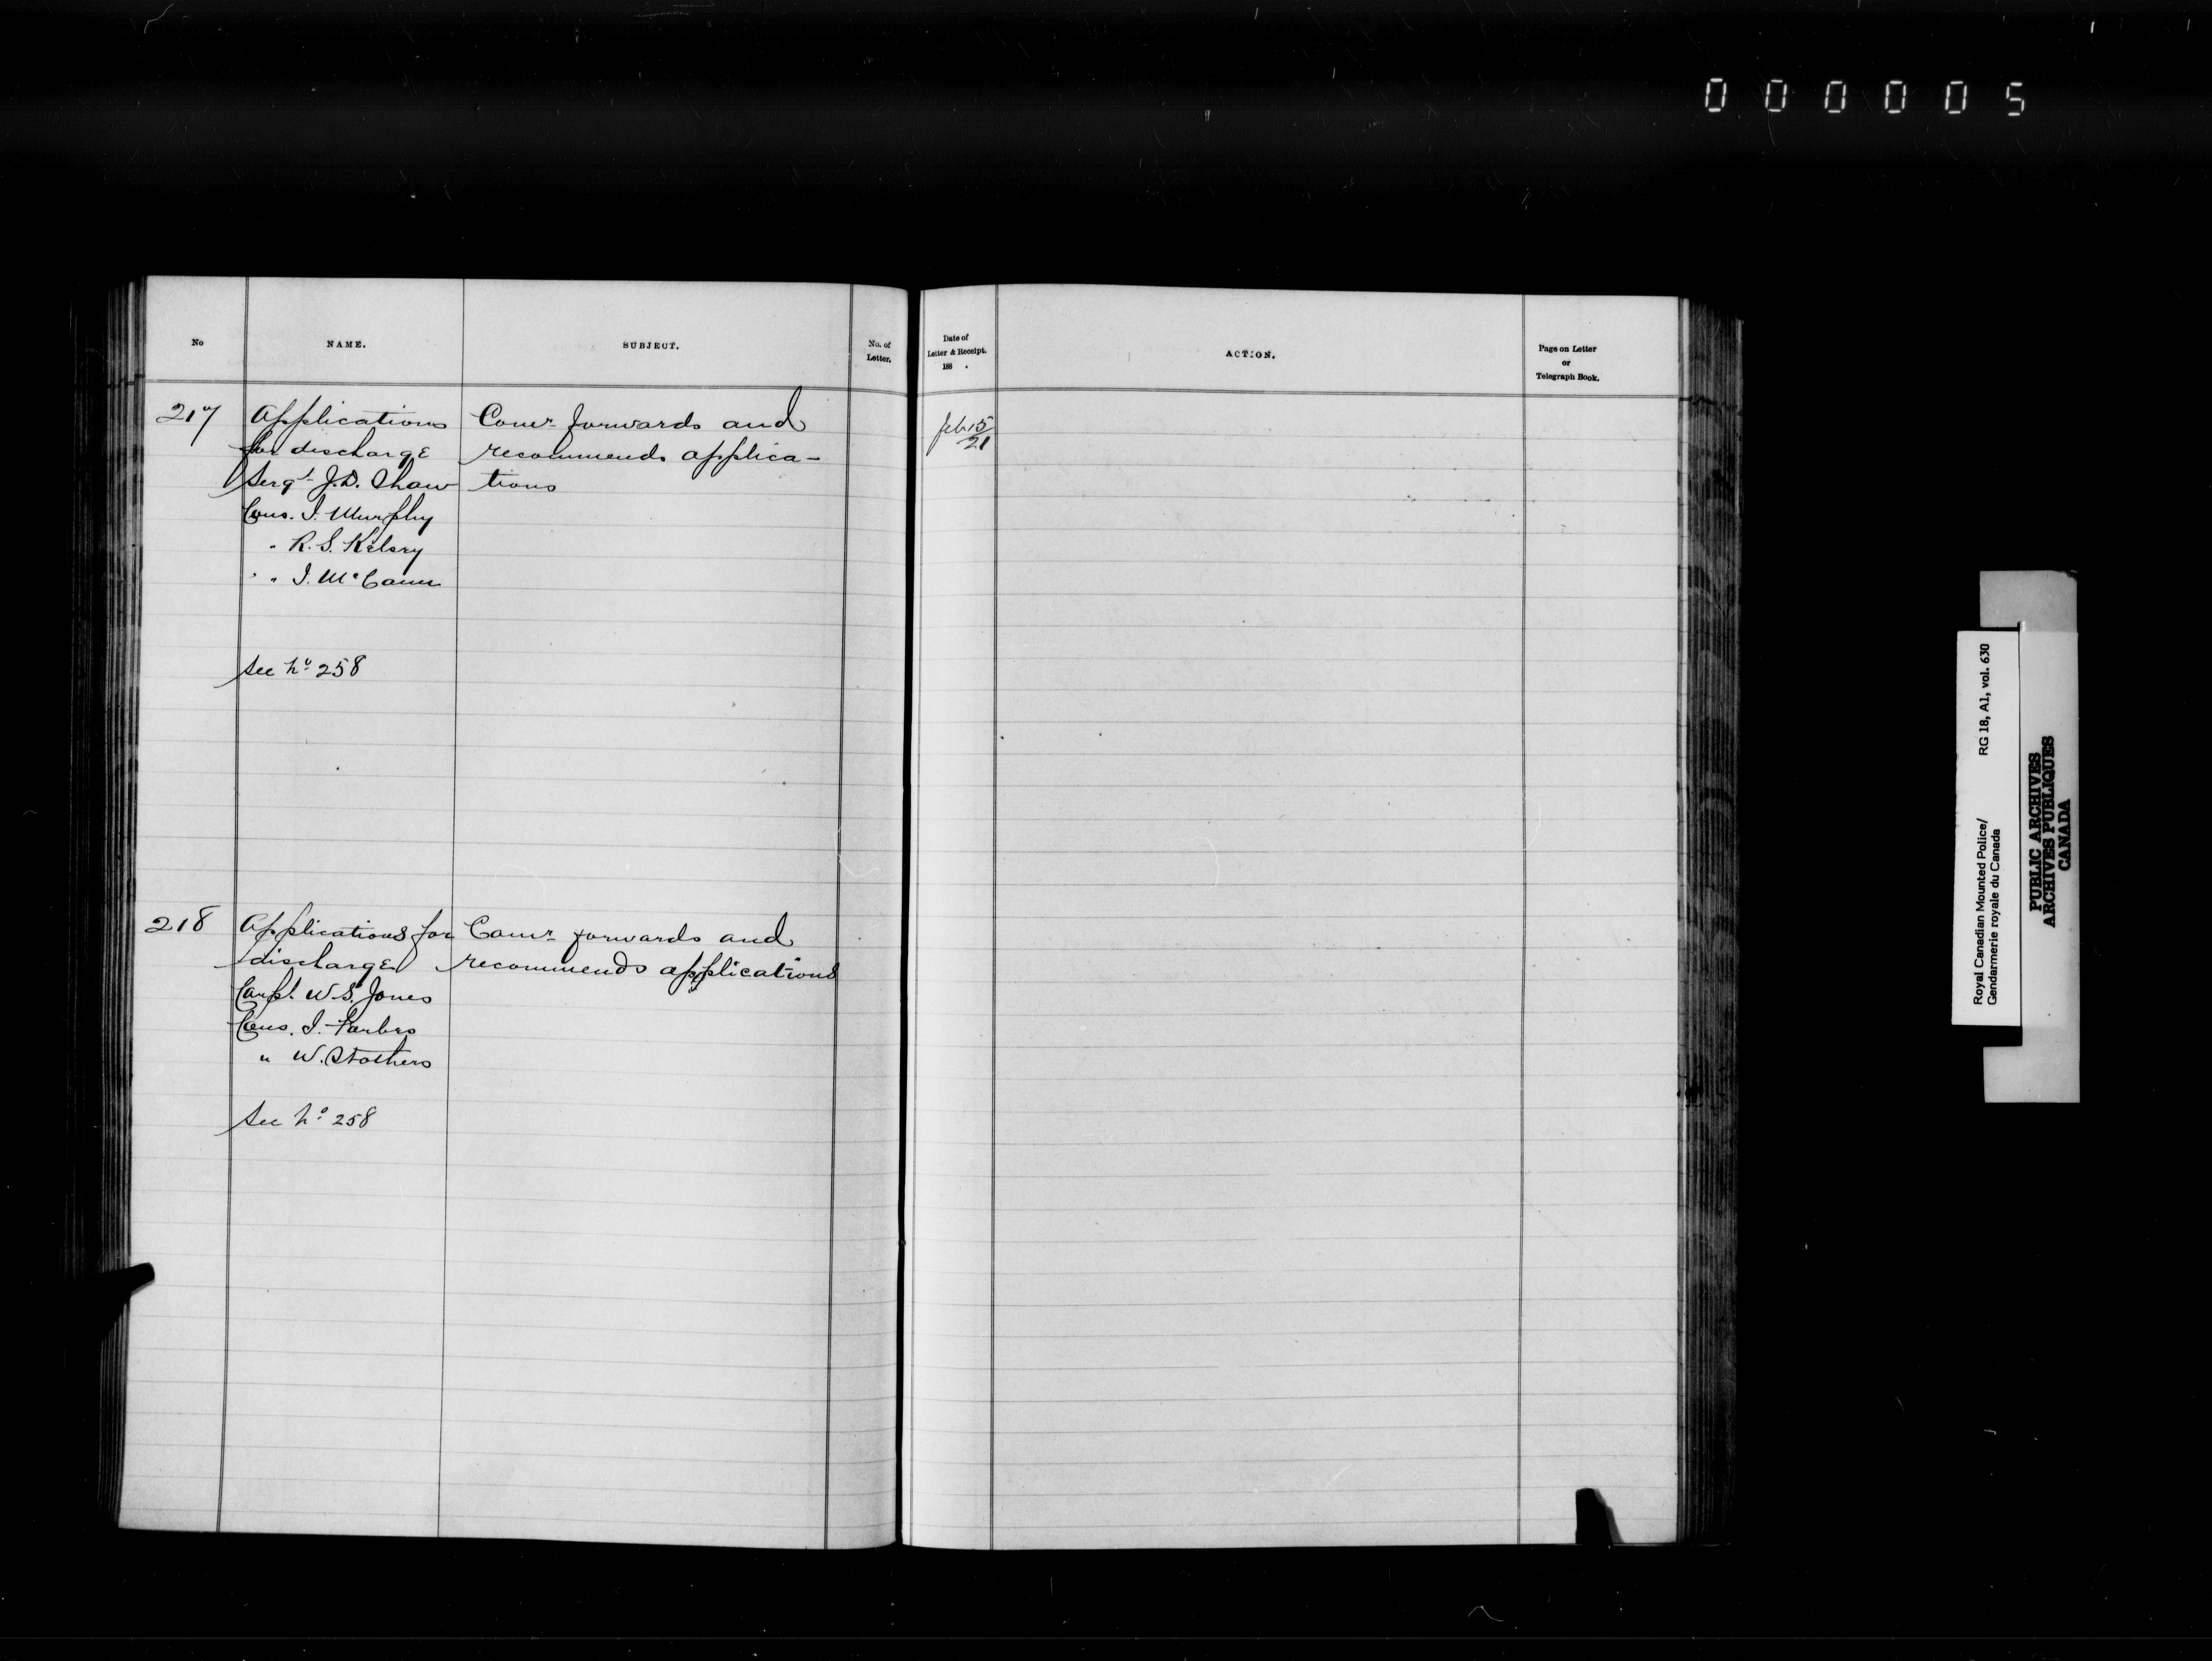 000005
No
NAME.
SUBJECT.
No. of
Letter.
Date of
Letter & Receipt.
188 .
ACTION.
Page on Letter
or
Telegraph Book.
217
Applications
for discharge
Sergt J.D. Shaw
Cons. J. Murphy
" R. S. Kelsey
" J. McCann
See No 258
Comr forwards and
recommends applica-
tions
Feb 15/21
218
Applications for
discharge
Corpl. W. S. Jones
Cons. J. Forbes
" W. Stothers
See No 258
Comr forwards and
recommends applications
Royal Canadian Mounted Police/
Gendarmerie royale du Canada
RG 18, A1, vol. 630
PUBLIC ARCHIVES
ARCHIVES PUBLIQUES
CANADA